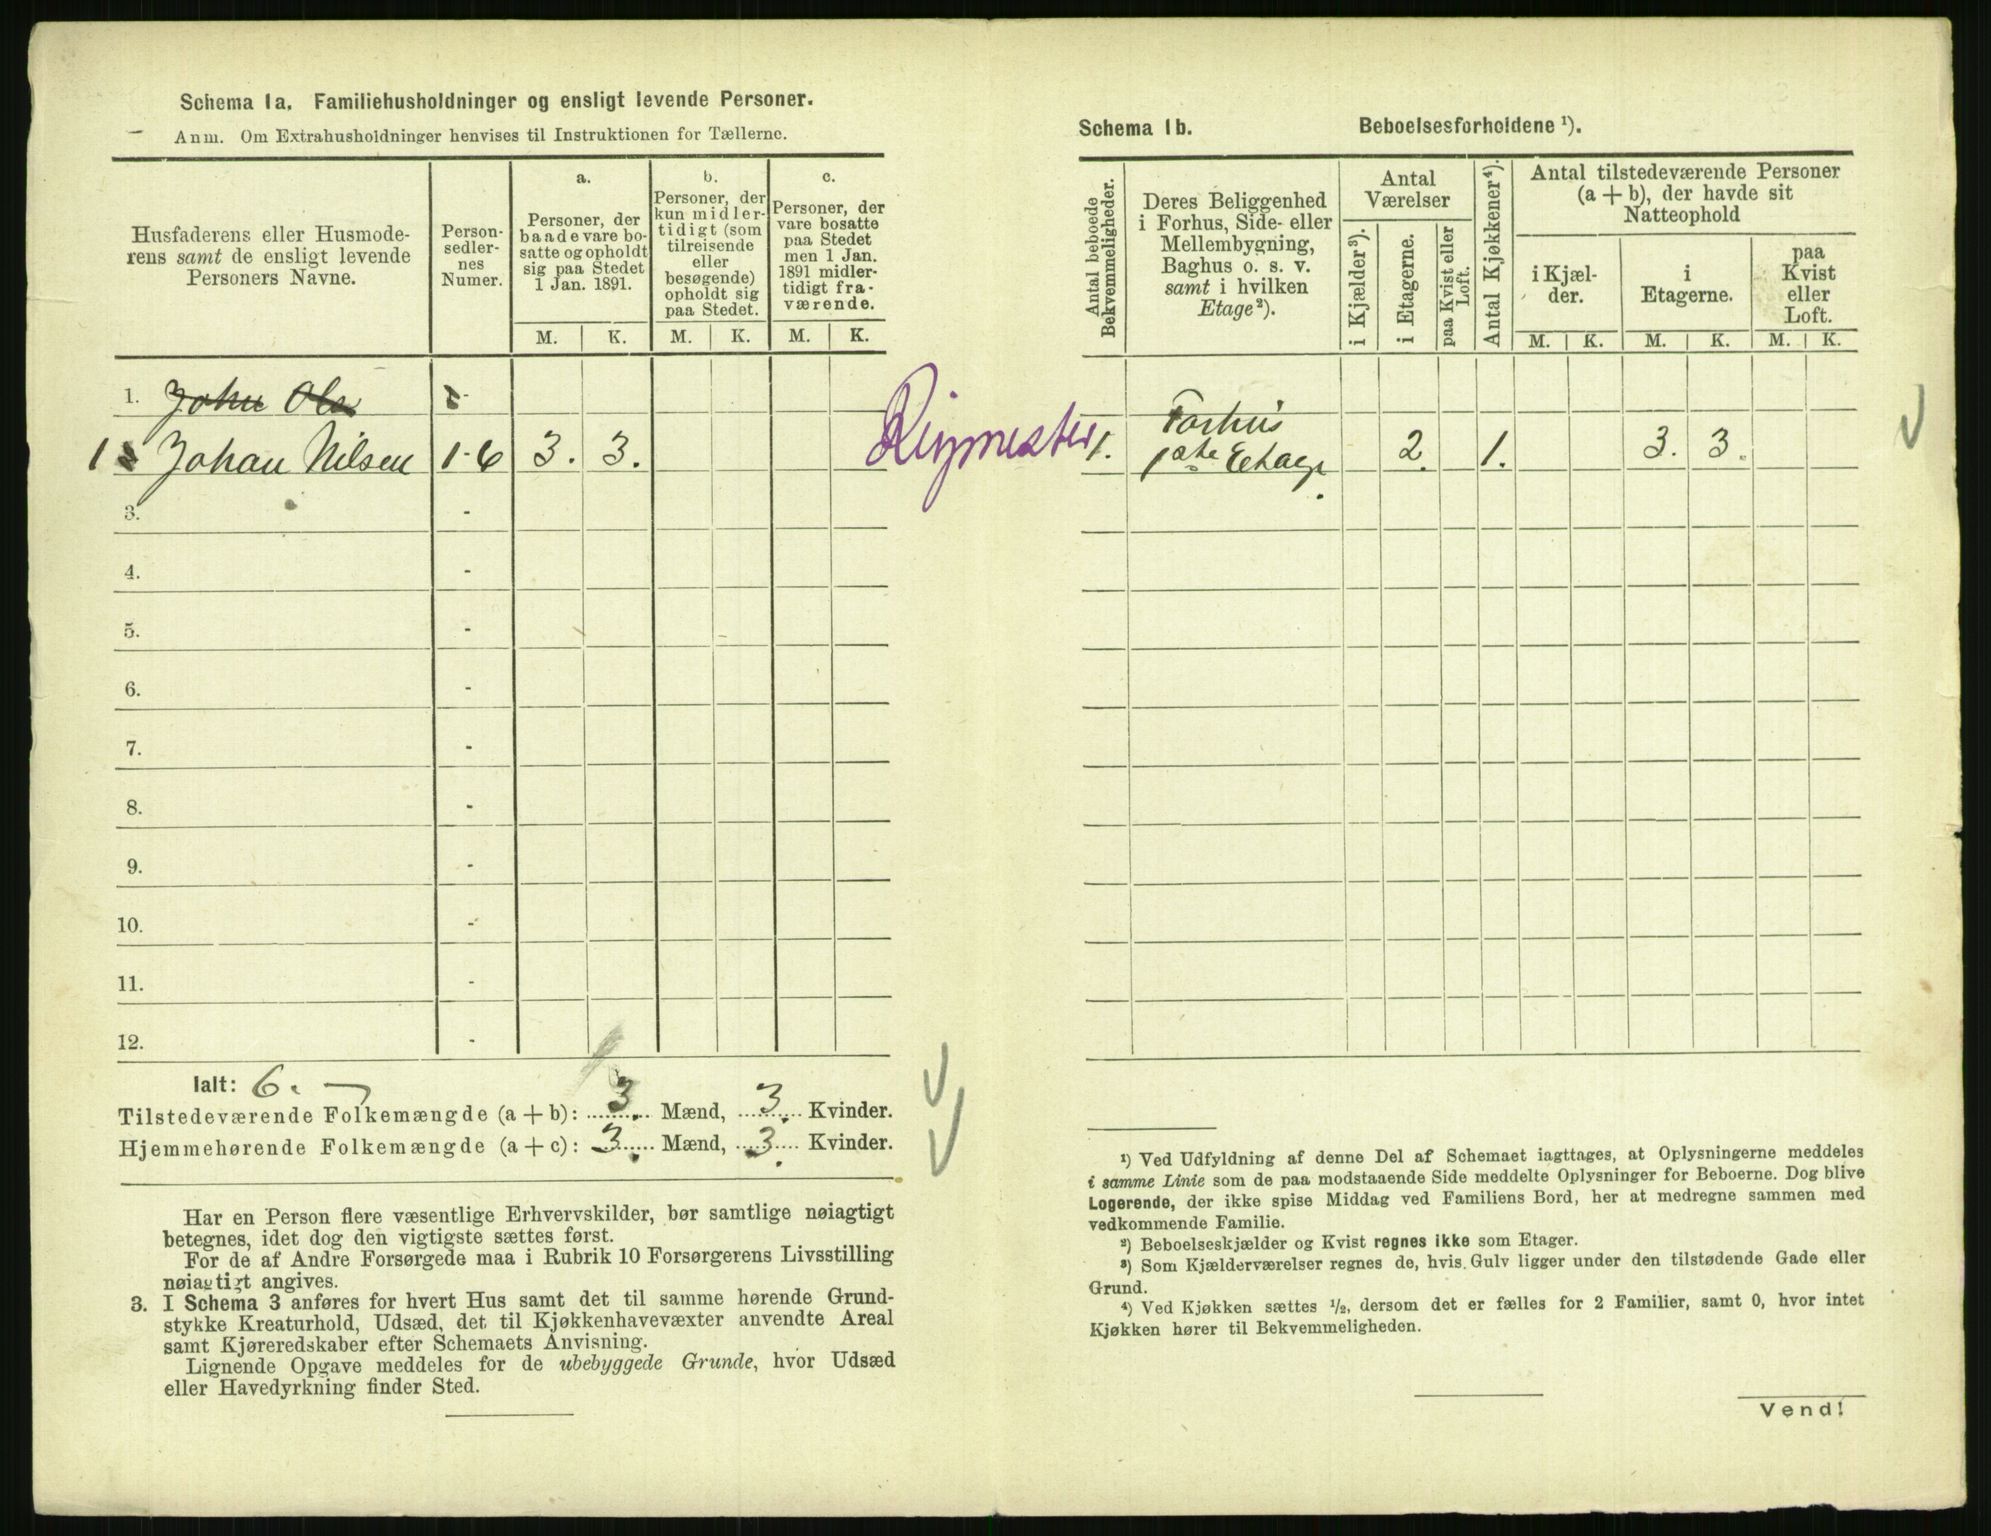 Schema 1a. Familiehusholdninger og ensligt levende Personer.
Anm. Om Extrahusholdninger henvises til Instruktionen for Tællerne.
Husfaderens eller Husmode-
rens samt de ensligt levende
Personers Navne.
Person-
sedler-
nes
Numer.
a.
Personer, der
baade vare bo-
satte og opholdt
sig paa Stedet
1 Jan. 1891.
b.
Personer, der
kun midler-
tidigt (som
tilreisende
eller
besøgende)
opholdt sig
paa Stedet.
c.
Personer, der
vare bosatte
paa Stedet
men 1 Jan.
1891 midler-
tidigt fra-
værende.
M. K. M. K. M. K.
1. John Ols
1 Johan Nilsen 1-6 3. 3.
3. -
4. -
5. -
6. -
7. -
8. -
9. -
10. -
11. -
12. -
Ialt: 6.
Tilstedeværende Folkemængde (a + b): 3. Mænd, 3. Kvinder.
Hjemmehørende Folkemængde (a + c): 3. Mænd, 3. Kvinder.
Har en Person flere væsentlige Erhvervskilder, bør samtlige nøiagtigt
betegnes, idet dog den vigtigste sættes først.
For de af Andre Forsørgede maa i Rubrik 10 Forsørgerens Livsstilling
nøiagtigt angives.
3. I Schema 3 anføres for hvert Hus samt det til samme hørende Grund-
stykke Kreaturhold, Udsæd, det til Kjøkkenhavevæxter anvendte Areal
samt Kjøreredskaber efter Schemaets Anvisning.
Lignende Opgave meddeles for de ubebyggede Grunde, hvor Udsæd
eller Havedyrkning finder Sted.
Schema 1b. Beboelsesforholdene ¹).
Antal beboede
Bekvemmeligheder.
Deres Beliggenhed
i Forhus, Side- eller
Mellembygning,
Baghus o. s. v.
samt i hvilken
Etage²).
Antal
Værelser
i Kjælder³).
i Etagerne.
paa Kvist eller
Loft.
Antal Kjøkkener⁴).
Antal tilstedeværende Personer
(a + b), der havde sit
Natteophold
i Kjæl-
der.
i
Etagerne.
paa
Kvist
eller
Loft.
M. K. M. K. M. K.
Forhus
1. 1ste Etage. 2. 1. 3. 3.
¹) Ved Udfyldning af denne Del af Schemaet iagttages, at Oplysningerne meddeles
i samme Linie som de paa modstaaende Side meddelte Oplysninger for Beboerne. Dog blive
Logerende, der ikke spise Middag ved Familiens Bord, her at medregne sammen med
vedkommende Familie.
²) Beboelseskjælder og Kvist regnes ikke som Etager.
³) Som Kjælderværelser regnes de, hvis Gulv ligger under den tilstødende Gade eller
Grund.
⁴) Ved Kjøkken sættes ½, dersom det er fælles for 2 Familier, samt 0, hvor intet
Kjøkken hører til Bekvemmeligheden.
Vend!